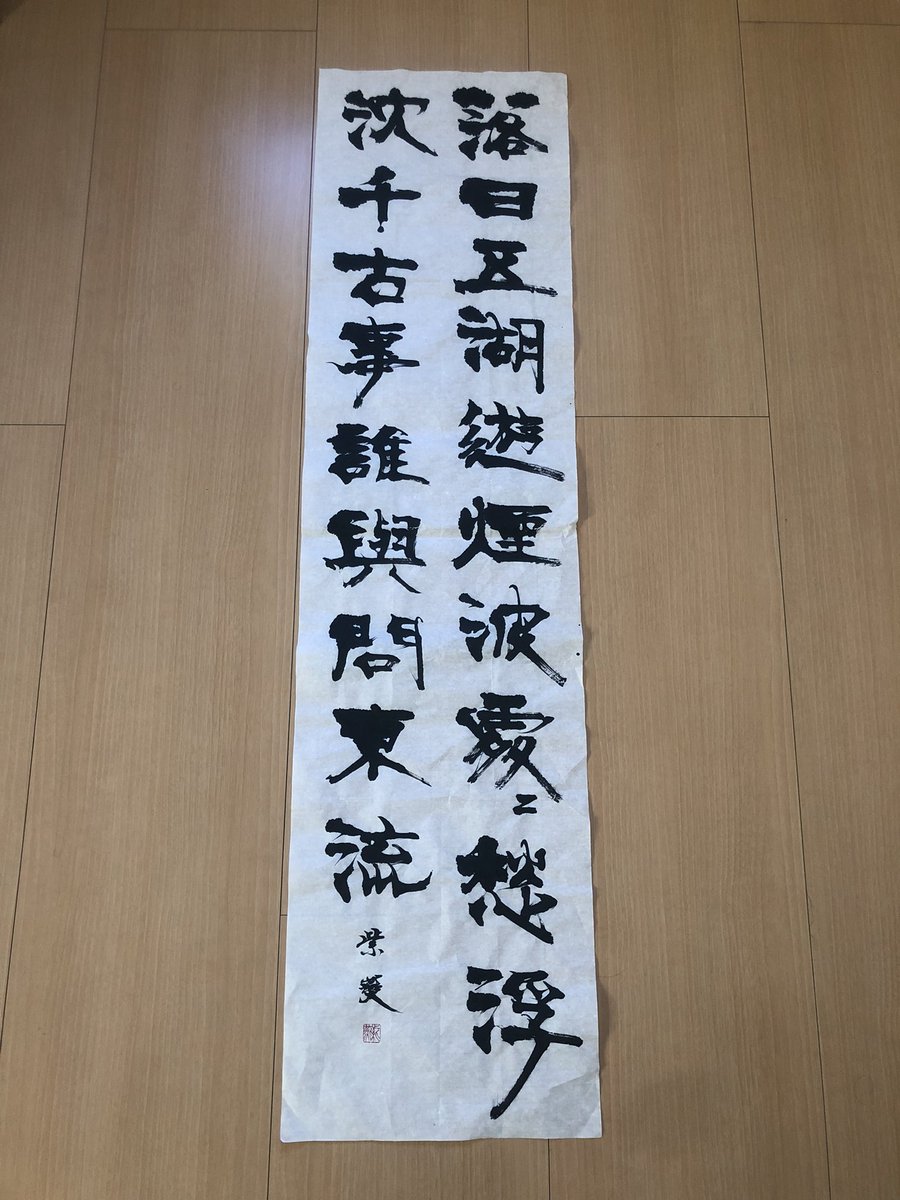 落日五湖遊煙波處々愁浮
沈千古事誰與問東流
紫